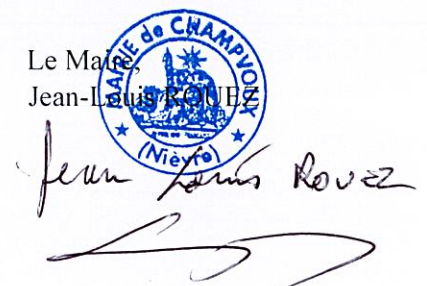 Le Maire,
Jean-Louis ROUEZ
MAIRIE de CHAMPVOUX
(Nièvre)
Jean Louis ROUEZ